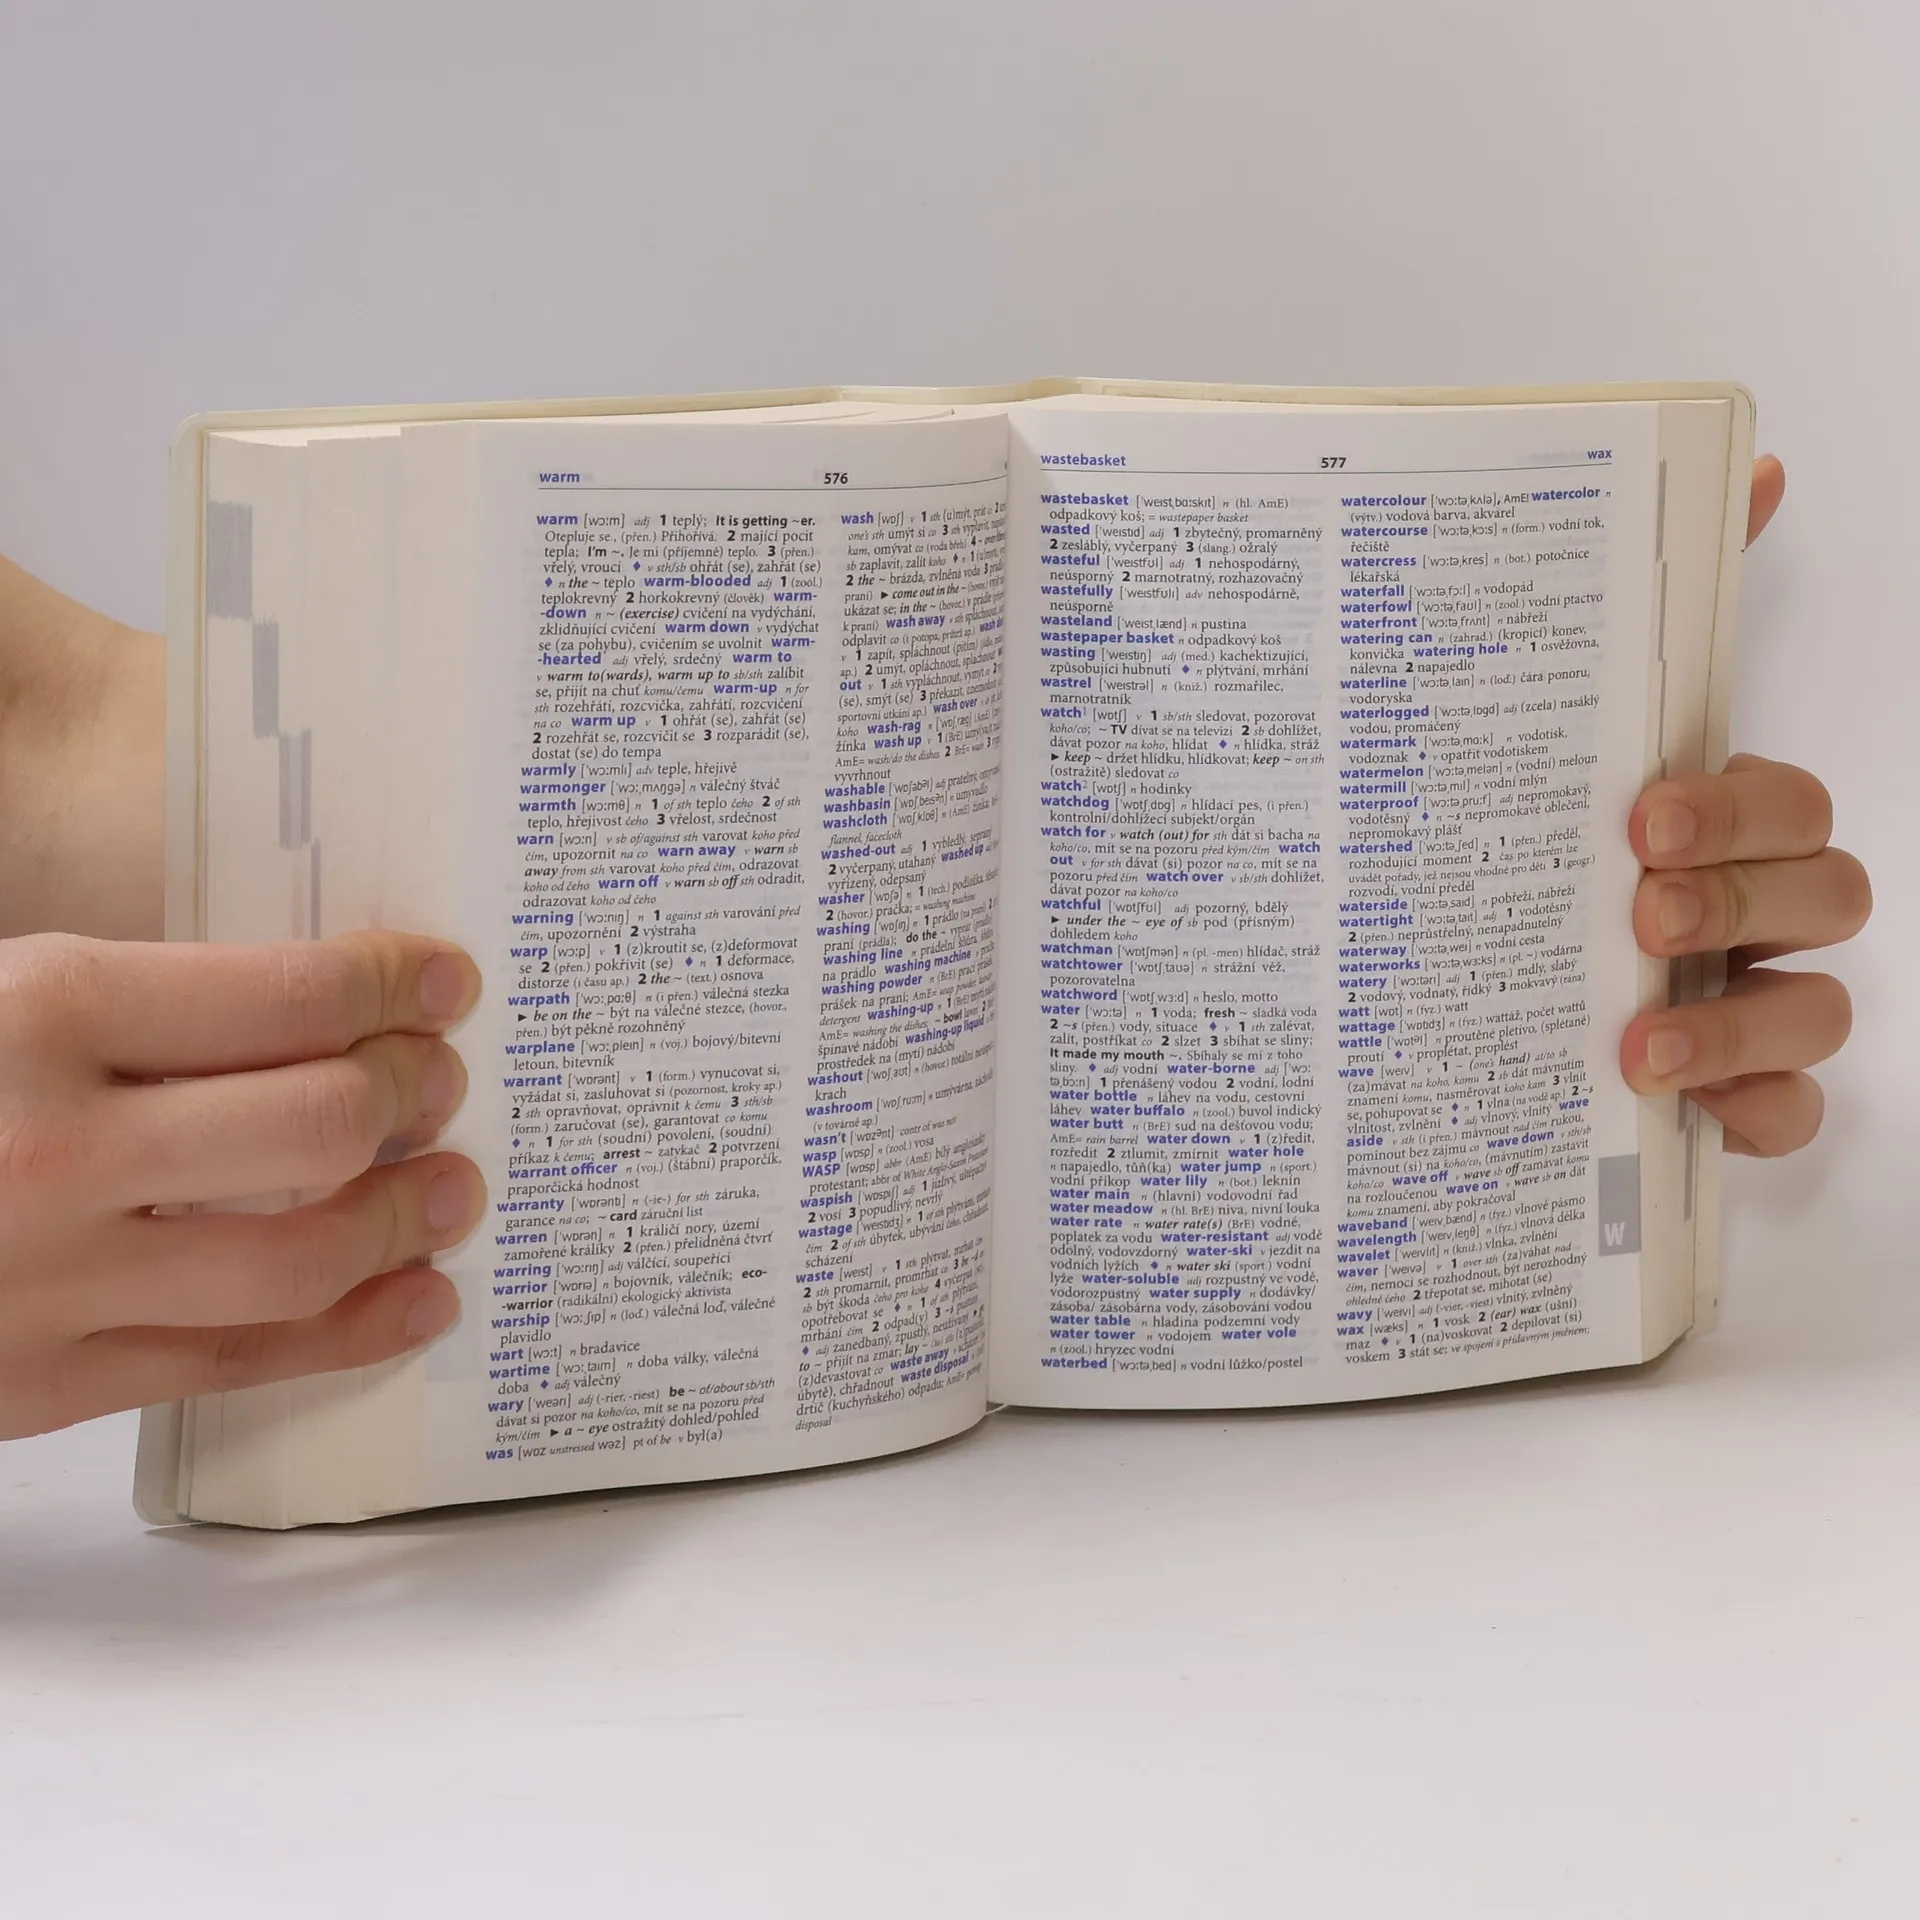 warm 576
warm [wɔːm] adj 1 teplý; It is getting ~er.
Otepluje se., (přen.) Přihořívá. 2 mající pocit
tepla; I'm ~. Je mi (příjemně) teplo. 3 (přen.)
vřelý, vroucí ♦ v sth/sb ohřát (se), zahřát (se)
♦ n the ~ teplo warm-blooded adj 1 (zool.)
teplokrevný 2 horkokrevný (člověk) warm-
-down n ~ (exercise) cvičení na vydýchání,
zklidňující cvičení warm down v vydýchat
se (za pohybu), cvičením se uvolnit warm-
-hearted adj vřelý, srdečný warm to
v warm to(wards), warm up to sb/sth zalíbit
se, přijít na chuť komu/čemu warm-up n for
sth rozehřátí, rozcvička, zahřátí, rozcvičení
na co warm up v 1 ohřát (se), zahřát (se)
2 rozehřát se, rozcvičit se 3 rozparádit (se),
dostat (se) do tempa
warmly [ˈwɔːmlɪ] adv teple, hřejivě
warmonger [ˈwɔːˌmʌŋɡə] n válečný štváč
warmth [wɔːmθ] n 1 of sth teplo čeho 2 of sth
teplo, hřejivost čeho 3 vřelost, srdečnost
warn [wɔːn] v sb of/against sth varovat koho před
čím, upozornit na co warn away v warn sb
away from sth varovat koho před čím, odrazovat
koho od čeho warn off v warn sb off sth odradit,
odrazovat koho od čeho
warning [ˈwɔːnɪŋ] n 1 against sth varování před
čím, upozornění 2 výstraha
warp [wɔːp] v 1 (z)kroutit se, (z)deformovat
se 2 (přen.) pokřivit (se) ♦ n 1 deformace,
distorze (i času ap.) 2 the ~ (text.) osnova
warpath [ˈwɔːˌpɑːθ] n (i přen.) válečná stezka
► be on the ~ být na válečné stezce, (hovor.,
přen.) být pěkně rozohněný
warplane [ˈwɔːˌpleɪn] n (voj.) bojový/bitevní
letoun, bitevník
warrant [ˈwɒrənt] v 1 (form.) vynucovat si,
vyžádat si, zasluhovat si (pozornost, kroky ap.)
2 sth opravňovat, oprávnit k čemu 3 sth/sb
(form.) zaručovat (se), garantovat co komu
♦ n 1 for sth (soudní) povolení, (soudní)
příkaz k čemu; arrest ~ zatykač 2 potvrzení
warrant officer n (voj.) (štábní) praporčík,
praporčická hodnost
warranty [ˈwɒrəntɪ] n (-ie-) for sth záruka,
garance na co; ~ card záruční list
warren [ˈwɒrən] n 1 králičí nory, území
zamořené králíky 2 (přen.) přelidněná čtvrť
warring [ˈwɔːrɪŋ] adj válčící, soupeřící
warrior [ˈwɒrɪə] n bojovník, válečník; eco-
-warrior (radikální) ekologický aktivista
warship [ˈwɔːˌʃɪp] n (loď.) válečná loď, válečné
plavidlo
wart [wɔːt] n bradavice
wartime [ˈwɔːˌtaɪm] n doba války, válečná
doba ♦ adj válečný
wary [ˈweərɪ] adj (-rier, -riest) be ~ of/about sb/sth
dávat si pozor na koho/co, mít se na pozoru před
kým/čím ► a ~ eye ostražitý dohled/pohled
was [wɒz unstressed wəz] pt of be v byl(a)
wash [wɒʃ] v 1 sth (u)mýt, prát co 2
one's sth umýt si co 3 sth vyplavit,
kam, omývat co (voda břeh) 4 ~
sb zaplavit, zalít koho ♦ n 1
2 the ~ brázda, zvlněná voda 3
praní) ► come out in the ~ (hovor.)
ukázat se; in the ~ (hovor.) v prádle
k praní) wash away v sth spláchnout,
odplavit co (i potopa, průtrž ap.)
v 1 zapít, spláchnout (pitím)
ap.) 2 umýt, opláchnout,
out v 1 sth vypláchnout, vymýt co 2
(se), smýt (se) 3 překazit,
sportovní utkání ap.) wash over v
koho wash-rag n [ˈwɒʃˌræɡ] (AmE)
žínka wash up v 1 (BrE)
AmE= wash/do the dishes 2 BrE= wash 3
vyvrhnout
washable [ˈwɒʃəbəl] adj pratelný,
washbasin [ˈwɒʃˌbeɪsən] n umyvadlo
washcloth [ˈwɒʃˌklɒθ] n (AmE) žínka;
flannel, facecloth
washed-out adj 1 vybledlý, sepraný
2 vyčerpaný, utahaný washed up adj
vyřízený, odepsaný
washer [ˈwɒʃə] n 1 (tech.) podložka,
2 (hovor.) pračka; = washing machine
washing [ˈwɒʃɪŋ] n 1 prádlo (na praní) 2
praní (prádla); do the ~ vyprat
washing line n prádelní šňůra,
na prádlo washing machine n pračka
washing powder n (BrE) prací prášek,
prášek na praní; AmE= soap powder,
detergent washing-up n 1 (BrE) mytí nádobí
AmE= washing the dishes; ~ bowl 2
špinavé nádobí washing-up liquid
prostředek na (mytí) nádobí
washout [ˈwɒʃˌaʊt] n (hovor.) totální
krach
washroom [ˈwɒʃˌruːm] n umývárna,
(v továrně ap.)
wasn't [ˈwɒzənt] contr of was not
wasp [wɒsp] n (zool.) vosa
WASP [wɒsp] abbr (AmE) bílý anglosaský
protestant; abbr of White Anglo-Saxon Protestant
waspish [ˈwɒspɪʃ] adj 1 jízlivý,
2 vosí 3 popudlivý, nevrlý
wastage [ˈweɪstɪdʒ] n 1 of sth plýtvání,
čím 2 of sth úbytek, ubývání čeho,
scházení
waste [weɪst] v 1 sth plýtvat, mrhat čím
2 sth promarnit, promrhat co 3 be ~d
sb být škoda čeho pro koho 4 vyčerpat
opotřebovat se ♦ n 1 of sth plýtvání,
mrhání čím 2 odpad(y) 3 ~s pustina
♦ adj zanedbaný, zpustlý, neužívaný
to ~ přijít na zmar; lay ~
(z)devastovat co waste away v
úbytě), chřadnout waste disposal n
drtič (kuchyňského) odpadu; AmE=
disposal
wastebasket 577 wax
wastebasket [ˈweɪstˌbɑːskɪt] n (hl. AmE)
odpadkový koš; = wastepaper basket
wasted [ˈweɪstɪd] adj 1 zbytečný, promarněný
2 zesláblý, vyčerpaný 3 (slang.) ožralý
wasteful [ˈweɪstfʊl] adj 1 nehospodárný,
neúsporný 2 marnotratný, rozhazovačný
wastefully [ˈweɪstfʊlɪ] adv nehospodárně,
neúsporně
wasteland [ˈweɪstˌlænd] n pustina
wastepaper basket n odpadkový koš
wasting [ˈweɪstɪŋ] adj (med.) kachektizující,
způsobující hubnutí ♦ n plýtvání, mrhání
wastrel [ˈweɪstrəl] n (kniž.) rozmařilec,
marnotratník
watch¹ [wɒtʃ] v 1 sb/sth sledovat, pozorovat
koho/co; ~ TV dívat se na televizi 2 sb dohlížet,
dávat pozor na koho, hlídat ♦ n hlídka, stráž
► keep ~ držet hlídku, hlídkovat; keep ~ on sth
(ostražitě) sledovat co
watch² [wɒtʃ] n hodinky
watchdog [ˈwɒtʃˌdɒɡ] n hlídací pes, (i přen.)
kontrolní/dohlížecí subjekt/orgán
watch for v watch (out) for sth dát si bacha na
koho/co, mít se na pozoru před kým/čím watch
out v for sth dávat (si) pozor na co, mít se na
pozoru před čím watch over v sb/sth dohlížet,
dávat pozor na koho/co
watchful [ˈwɒtʃfʊl] adj pozorný, bdělý
► under the ~ eye of sb pod (přísným)
dohledem koho
watchman [ˈwɒtʃmən] n (pl. -men) hlídač, stráž
watchtower [ˈwɒtʃˌtaʊə] n strážní věž,
pozorovatelna
watchword [ˈwɒtʃˌwɜːd] n heslo, motto
water [ˈwɔːtə] n 1 voda; fresh ~ sladká voda
2 ~s (přen.) vody, situace ♦ v 1 sth zalévat,
zalít, postříkat co 2 slzet 3 sbíhat se sliny;
It made my mouth ~. Sbíhaly se mi z toho
sliny. ♦ adj vodní water-borne adj [ˈwɔː
təˌbɔːn] 1 přenášený vodou 2 vodní, lodní
water bottle n láhev na vodu, cestovní
láhev water buffalo n (zool.) buvol indický
water butt n (BrE) sud na dešťovou vodu;
AmE= rain barrel water down v 1 (z)ředit,
rozředit 2 ztlumit, zmírnit water hole
n napajedlo, tůň(ka) water jump n (sport.)
vodní příkop water lily n (bot.) leknín
water main n (hlavní) vodovodní řad
water meadow n (hl. BrE) niva, nivní louka
water rate n water rate(s) (BrE) vodné,
poplatek za vodu water-resistant adj vodě
odolný, vodovzdorný water-ski v jezdit na
vodních lyžích ♦ n water ski (sport.) vodní
lyže water-soluble adj rozpustný ve vodě,
vodorozpustný water supply n dodávky/
zásoba/ zásobárna vody, zásobování vodou
water table n hladina podzemní vody
water tower n vodojem water vole
n (zool.) hryzec vodní
waterbed [ˈwɔːtəˌbed] n vodní lůžko/postel
watercolour [ˈwɔːtəˌkʌlə], AmE! watercolor n
(výtv.) vodová barva, akvarel
watercourse [ˈwɔːtəˌkɔːs] n (form.) vodní tok,
řečiště
watercress [ˈwɔːtəˌkres] n (bot.) potočnice
lékařská
waterfall [ˈwɔːtəˌfɔːl] n vodopád
waterfowl [ˈwɔːtəˌfaʊl] n (zool.) vodní ptactvo
waterfront [ˈwɔːtəˌfrʌnt] n nábřeží
watering can n (zahrad.) (kropicí) konev,
konvička watering hole n 1 osvěžovna,
nálevna 2 napajedlo
waterline [ˈwɔːtəˌlaɪn] n (loď.) čára ponoru,
vodoryska
waterlogged [ˈwɔːtəˌlɒɡd] adj (zcela) nasáklý
vodou, promáčený
watermark [ˈwɔːtəˌmɑːk] n vodotisk,
vodoznak ♦ v opatřit vodotiskem
watermelon [ˈwɔːtəˌmelən] n (vodní) meloun
watermill [ˈwɔːtəˌmɪl] n vodní mlýn
waterproof [ˈwɔːtəˌpruːf] adj nepromokavý,
vodotěsný ♦ n ~s nepromokavé oblečení,
nepromokavý plášť
watershed [ˈwɔːtəˌʃed] n 1 (přen.) předěl,
rozhodující moment 2 čas po kterém lze
uvádět pořady, jež nejsou vhodné pro děti 3 (geogr.)
rozvodí, vodní předěl
waterside [ˈwɔːtəˌsaɪd] n pobřeží, nábřeží
watertight [ˈwɔːtəˌtaɪt] adj 1 vodotěsný
2 (přen.) neprůstřelný, nenapadnutelný
waterway [ˈwɔːtəˌweɪ] n vodní cesta
waterworks [ˈwɔːtəˌwɜːks] n (pl. ~) vodárna
watery [ˈwɔːtərɪ] adj 1 (přen.) mdlý, slabý
2 vodový, vodnatý, řídký 3 mokvavý (rána)
watt [wɒt] n (fyz.) watt
wattage [ˈwɒtɪdʒ] n (fyz.) wattáž, počet wattů
wattle [ˈwɒtəl] n proutěné pletivo, (splétané)
proutí ♦ v proplétat, proplést
wave [weɪv] v 1 ~ (one's hand) at/to sb
(za)mávat na koho, komu 2 sb dát mávnutím
znamení komu, nasměrovat koho kam 3 vlnit
se, pohupovat se ♦ n 1 vlna (na vodě ap.) 2 ~s
vlnitost, zvlnění ♦ adj vlnový, vlnitý wave
aside v sth (i přen.) mávnout nad čím rukou,
pominout bez zájmu co wave down v sth/sb
mávnout (si) na koho/co, (mávnutím) zastavit
koho/co wave off v wave sb off zamávat komu
na rozloučenou wave on v wave sb on dát
komu znamení, aby pokračoval
waveband [ˈweɪvˌbænd] n (fyz.) vlnové pásmo
wavelength [ˈweɪvˌleŋθ] n (fyz.) vlnová délka
wavelet [ˈweɪvlɪt] n (kniž.) vlnka, zvlnění
waver [ˈweɪvə] v 1 over sth (za)váhat nad
čím, nemoci se rozhodnout, být nerozhodný
ohledně čeho 2 třepotat se, mihotat (se)
wavy [ˈweɪvɪ] adj (-vier, -viest) vlnitý, zvlněný
wax [wæks] n 1 vosk 2 (ear) wax (ušní)
maz ♦ v 1 (na)voskovat 2 depilovat (si)
voskem 3 stát se; ve spojení s přídavným jménem;
W